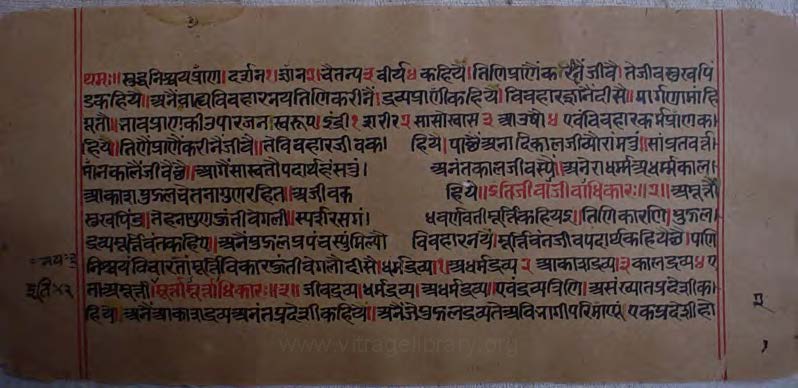 थमः॥ सुद्धनिश्चयप्राण। दर्शन१ ज्ञान२ चैतन्य३ वीर्य४ कहियै। तिणि प्राणैं करीनैं जीवै। ते जीव सुखपिं
ड कहियै। अनैं बाह्य विवहारनय तिणि करीनैं। द्रव्यप्राणी कहियै। विवहार ज्ञानैं दीसै॥ मार्गणा मांहि
भावप्राणकी उपारजन स्वरूप। इंद्री१ शरीर२ सासोस्वास३ आउषो४ ए विवहारकर्मप्राण क
हियै। तिणि प्राणैं करीनैं जीवै। ते विवहारजीव कहियै। पाछैं अनादिकाल जीव्यौ राम मुं॥ सांप्रत वर्त्त
मांनकालैं जीवै छै॥ आगैं सास्वतौ पदार्थ हं सतुं। अनंतकाल जीवस्यें। अनै राधर्म अधर्म काल।
आकाश पुद्गल चेतनागुणरहित। अजीव क हियै॥ इति जीवाजीवाधिकारः॥२॥ अमूर्त्तौ
सुखपिंड। तेहना गुणऊंती वेगली॥ स्पर्श रस गं धवर्णवती मूर्त्ति कहियइ। तिणि कारणि। पुद्गल।
द्रव्य मूर्त्तिवंत कहियै। अनैं पुद्गल प्रपंचस्युं मिल्यौ विवहारनयैं। मूर्त्तिवंत जीवपदार्थ कहियै छै। पणि
निश्चय विचारतां मूर्त्तिविकारऊंती वेगलौ दीसै। धर्मद्रव्य१ अधर्मद्रव्य२ आकाशद्रव्य३ कालद्रव्य४ ए
ना अमूर्त्ती। मूर्त्तामूर्त्ताधिकारः॥३॥ जीवद्रव्य। धर्मद्रव्य। अधर्मद्रव्य। एवं द्रव्य त्रिणि। असंख्यातप्रदेशी क
हियै। अनैं आकाशद्रव्य अनंतप्रदेशी कहियै॥ अनैं जे पुद्गलद्रव्य ते अविभागी परिमाणुं एकप्रदेशी हो
www.vitragelibrary.org